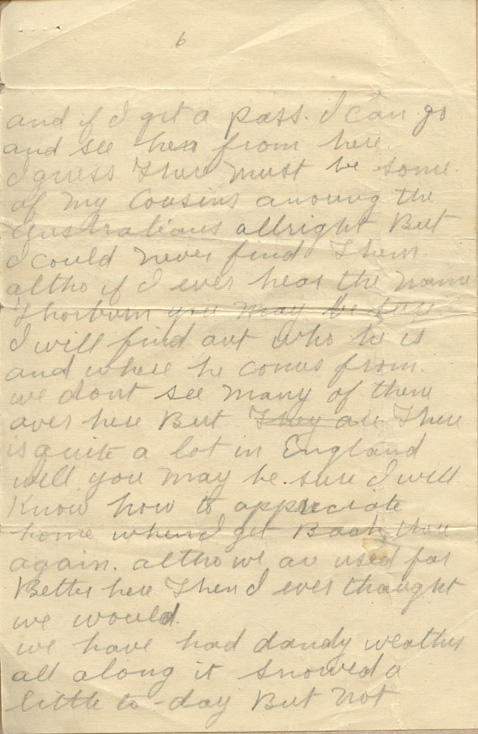 6
and if I get a pass. I can go
and see her from here.
I guess There must be some
of my Cousins among the
Australians allright But
I could never find Them.
altho if I ever hear the name
Thorburn you may be sure
I will find out who he is
and where he comes from.
we dont see many of them
over here But They are There
is quite a lot in England
well you may be sure I will
Know how to appreciate
home when I get Back There
again. altho we are used far
Better here Then I ever thought
we would.
we have had dandy weather
all along it snowed a
little to-day But not